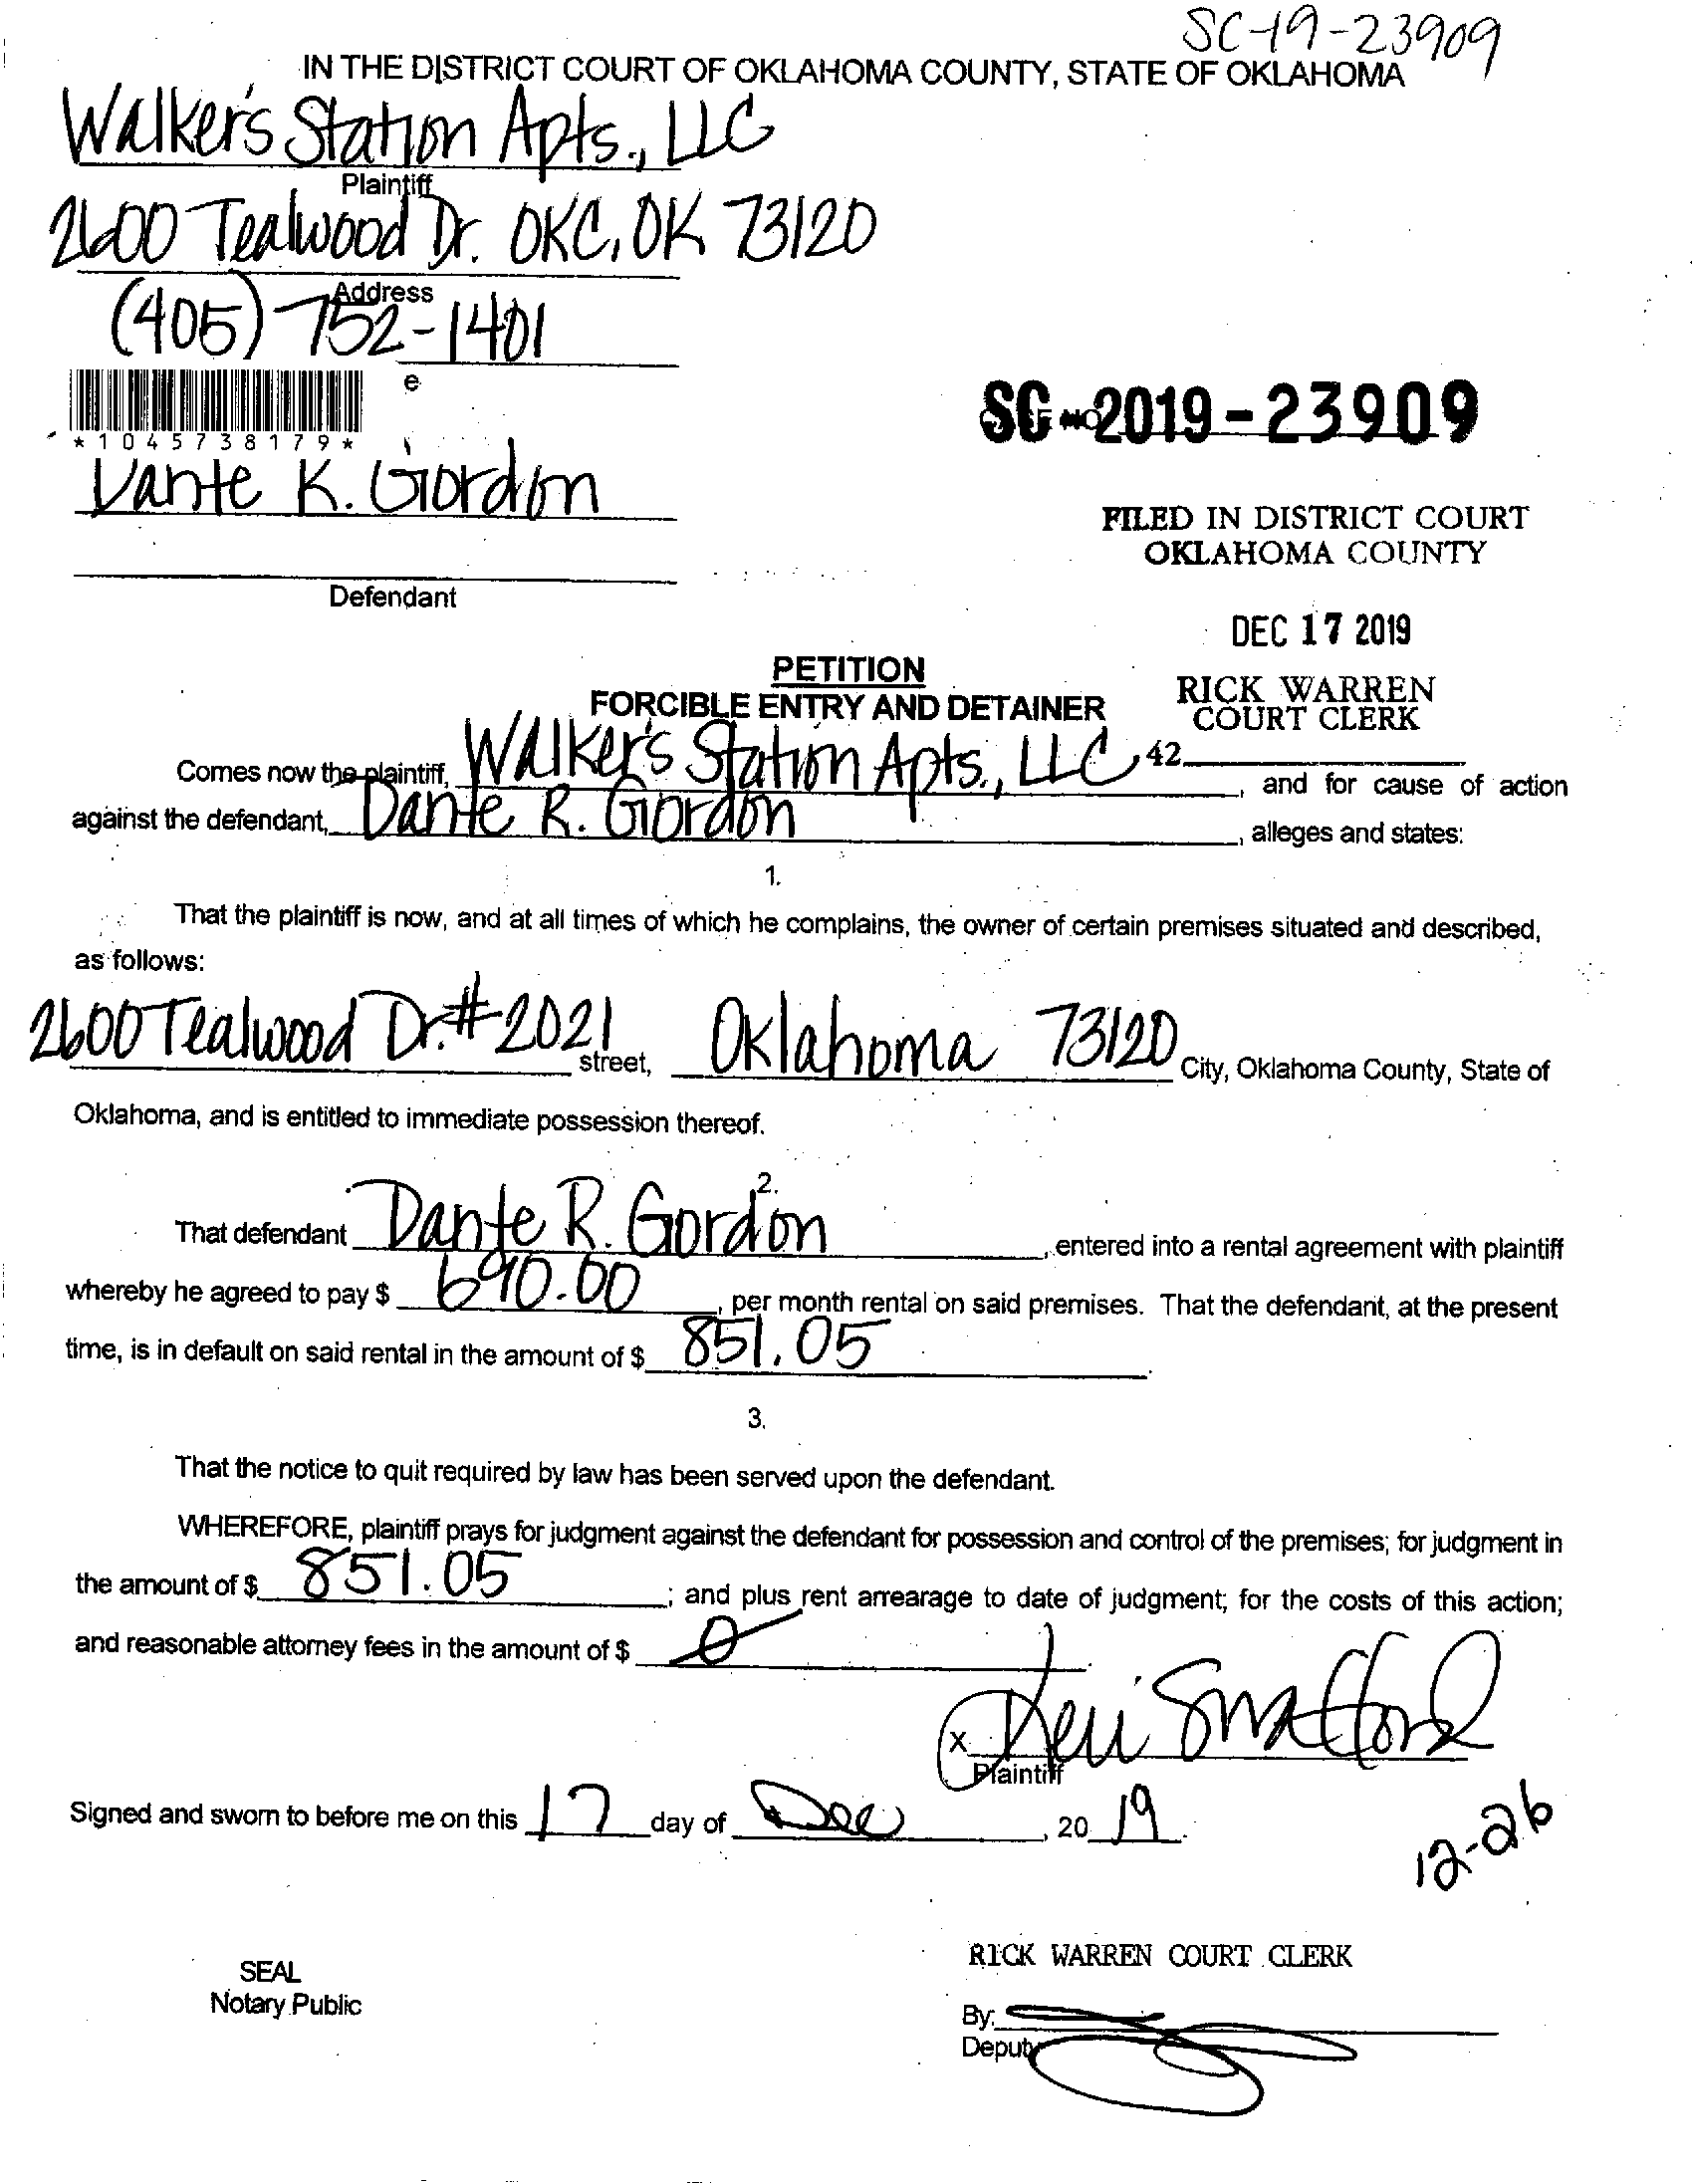 SC-19-23909
IN THE DISTRICT COURT OF OKLAHOMA COUNTY, STATE OF OKLAHOMA
Walker's Station Apts., LLC
Plaintiff
2600 Tealwood Dr. OKC, OK 73120
Address
(405) 752-1401
e
*1045738179*
SC-2019-23909
Dante R. Gordon
FILED IN DISTRICT COURT
OKLAHOMA COUNTY
Defendant
DEC 17 2019
PETITION
FORCIBLE ENTRY AND DETAINER
RICK WARREN
COURT CLERK
42
Comes now the plaintiff, Walker's Station Apts., LLC, and for cause of action
against the defendant, Dante R. Gordon, alleges and states:
1.
That the plaintiff is now, and at all times of which he complains, the owner of certain premises situated and described,
as follows:
2600 Tealwood Dr. #2021 street, Oklahoma 73120 City, Oklahoma County, State of
Oklahoma, and is entitled to immediate possession thereof.
2.
That defendant Dante R. Gordon, entered into a rental agreement with plaintiff
whereby he agreed to pay $ 690.00, per month rental on said premises. That the defendant, at the present
time, is in default on said rental in the amount of $ 851.05.
3.
That the notice to quit required by law has been served upon the defendant.
WHEREFORE, plaintiff prays for judgment against the defendant for possession and control of the premises; for judgment in
the amount of $ 851.05; and plus rent arrearage to date of judgment; for the costs of this action;
and reasonable attorney fees in the amount of $ 0
X
Plaintiff
Signed and sworn to before me on this 17 day of Dec, 20 19.
12-26
RICK WARREN COURT CLERK
SEAL
Notary Public
By:
Deputy